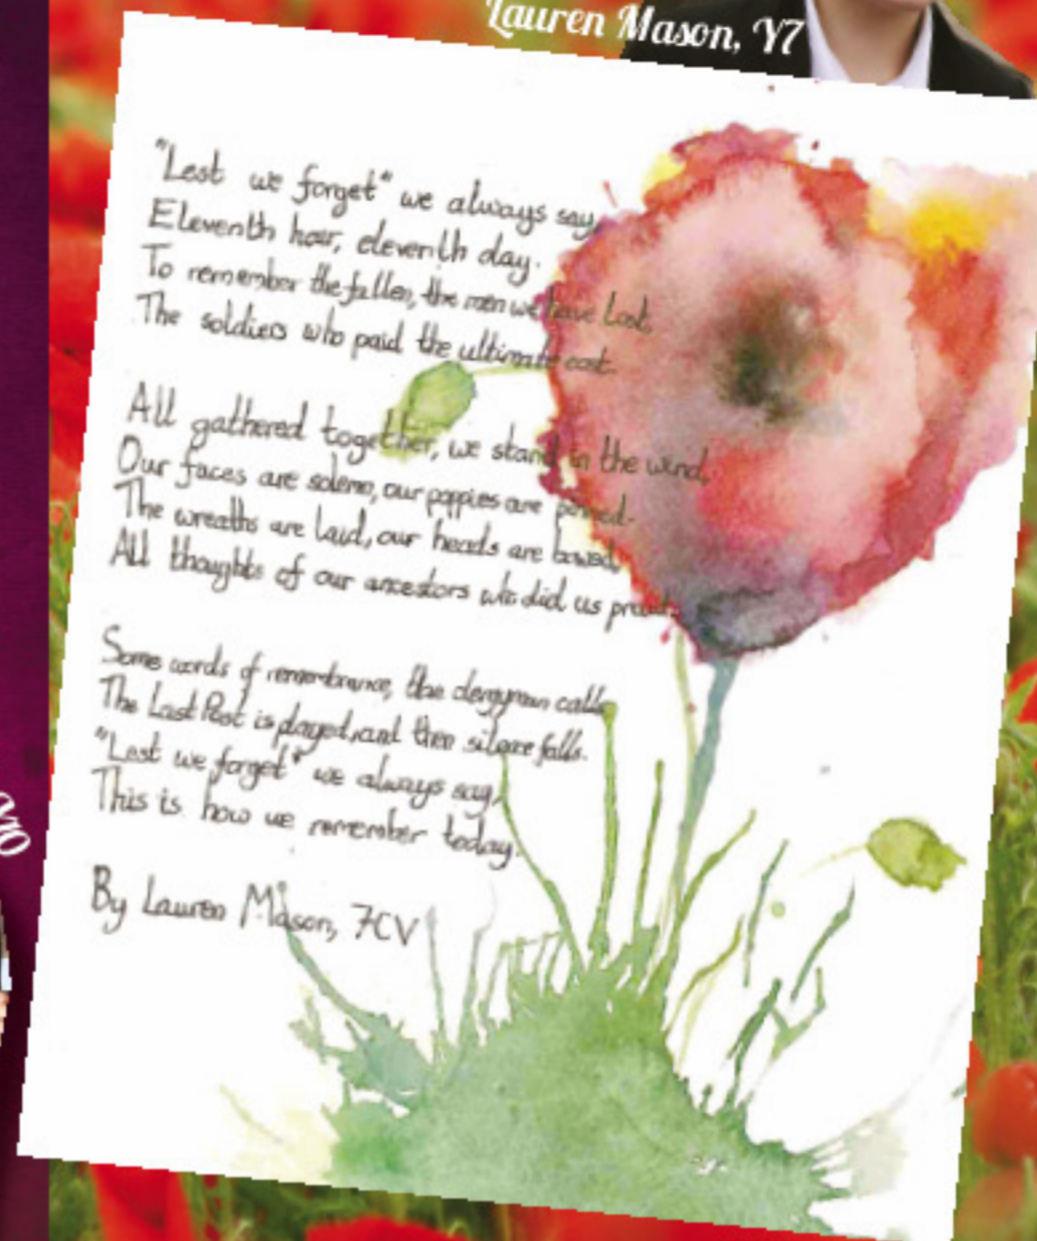 Lauren Mason, Y7
"Lest we forget" we always say,
Eleventh hour, eleventh day.
To remember the fallen, the men we have lost,
The soldiers who paid the ultimate cost.
All gathered together, we stand in the wind,
Our faces are solemn, our poppies are pinned.
The wreaths are laid, our heads are bowed,
All thoughts of our ancestors who did us proud.
Some words of remembrance, the clergyman calls
The Last Post is played, and then silence falls.
"Lest we forget" we always say,
This is how we remember today.
By Lauren Mason, 7CV